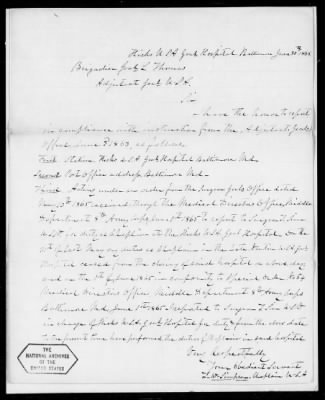 Hicks U.S.A. Genl Hospital Baltimore June 30th 1865
Brigadier Genl L Thomas
Adjutant Genl U.S.A.
Sir
I have the honor to report
in compliance with instruction from the Adjutant Genls
Office June 1863, as follows
First Station Hicks U.S.A. Genl Hospital Baltimore Md.
Second Post Office address, Baltimore Md.
Third Acting under an order from the Surgeon Genls Office dated
1865 received through the Medical Directors Office, Middle
Department 8th Army Corps June 1st 1865 to report to Surgeon T. Sim
U.S.V. for duty as Chaplain at the Hicks U.S.A. Genl Hospital. On the
of May my duties as Chaplain in the U.S.A. Genl
Hospital ceased from the closing of said Hospital on above day
and on the 1st of June 1865 in conformity to Special Order No
Medical Directors Office Middle Department 8th Army Corps
Baltimore Md. June 1st 1865 I reported to Surgeon T. Sim U.S.V.
in charge of Hicks U.S.A. Genl Hospital for duty & from the above date
to the present time have performed the duties of Chaplain in said hospital
Very Respectfully
Your obedient Servant
Simpson Chaplain U.S.A.
THE
NATIONAL ARCHIVES
OF THE
UNITED STATES